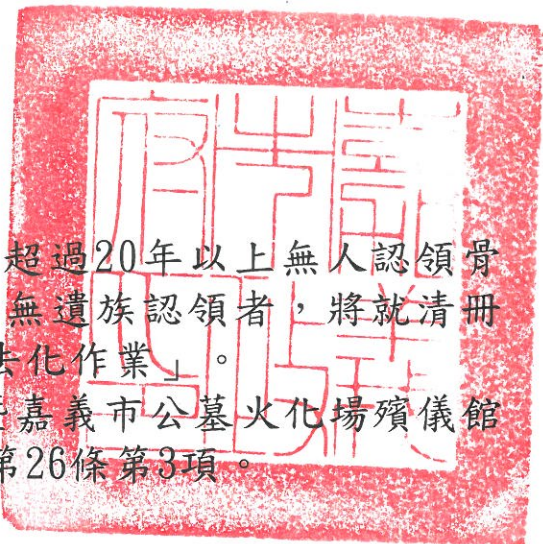 嘉義
市政
府印
超過20年以上無人認領骨
無遺族認領者，將就清冊
去化作業」。
嘉義市公墓火化場殯儀館
第26條第3項。